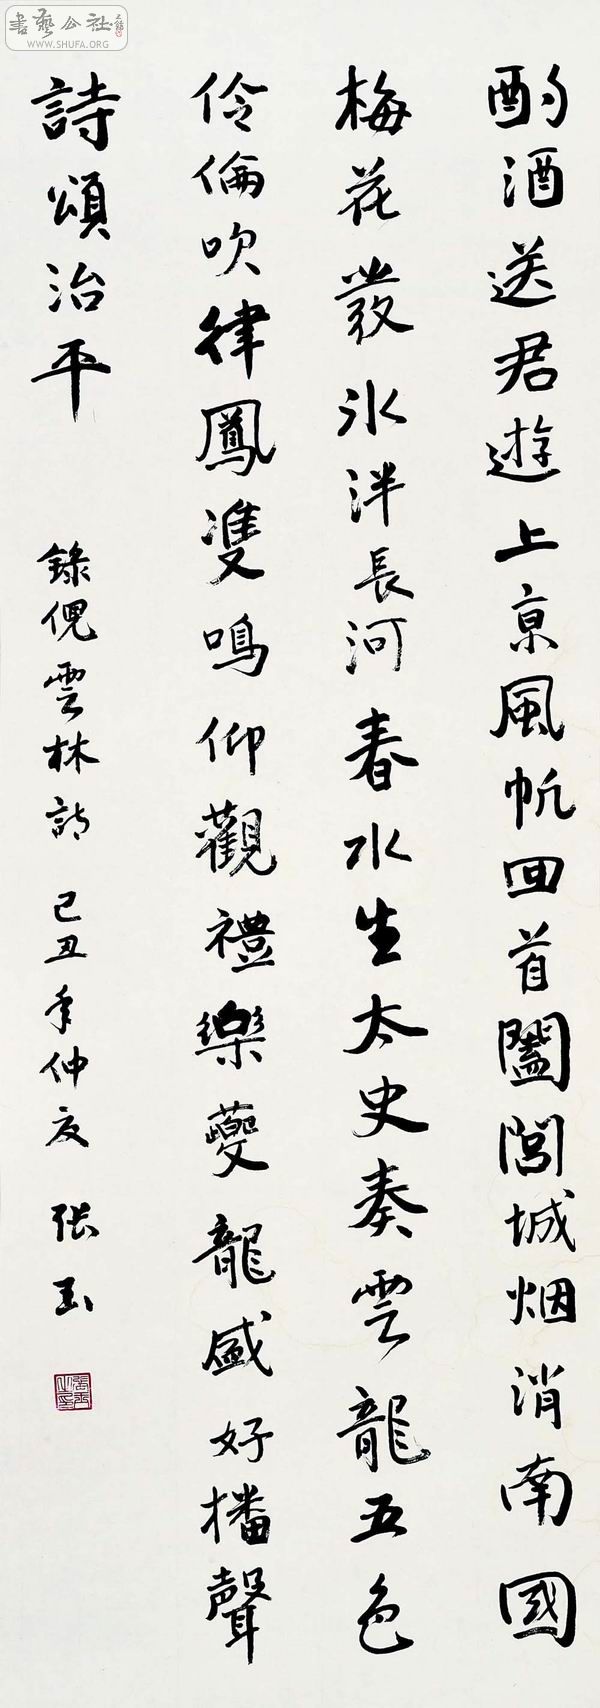 書藝公社
WWW.SHUFA.ORG
酌酒送君遊上京風帆回首闔閭城烟消南國
梅花發冰泮長河春水生太史奏雲龍五色
伶倫吹律鳳雙鳴仰觀禮樂夔龍盛好播聲
詩頌治平 錄倪雲林詩 己丑年仲夏 张玉